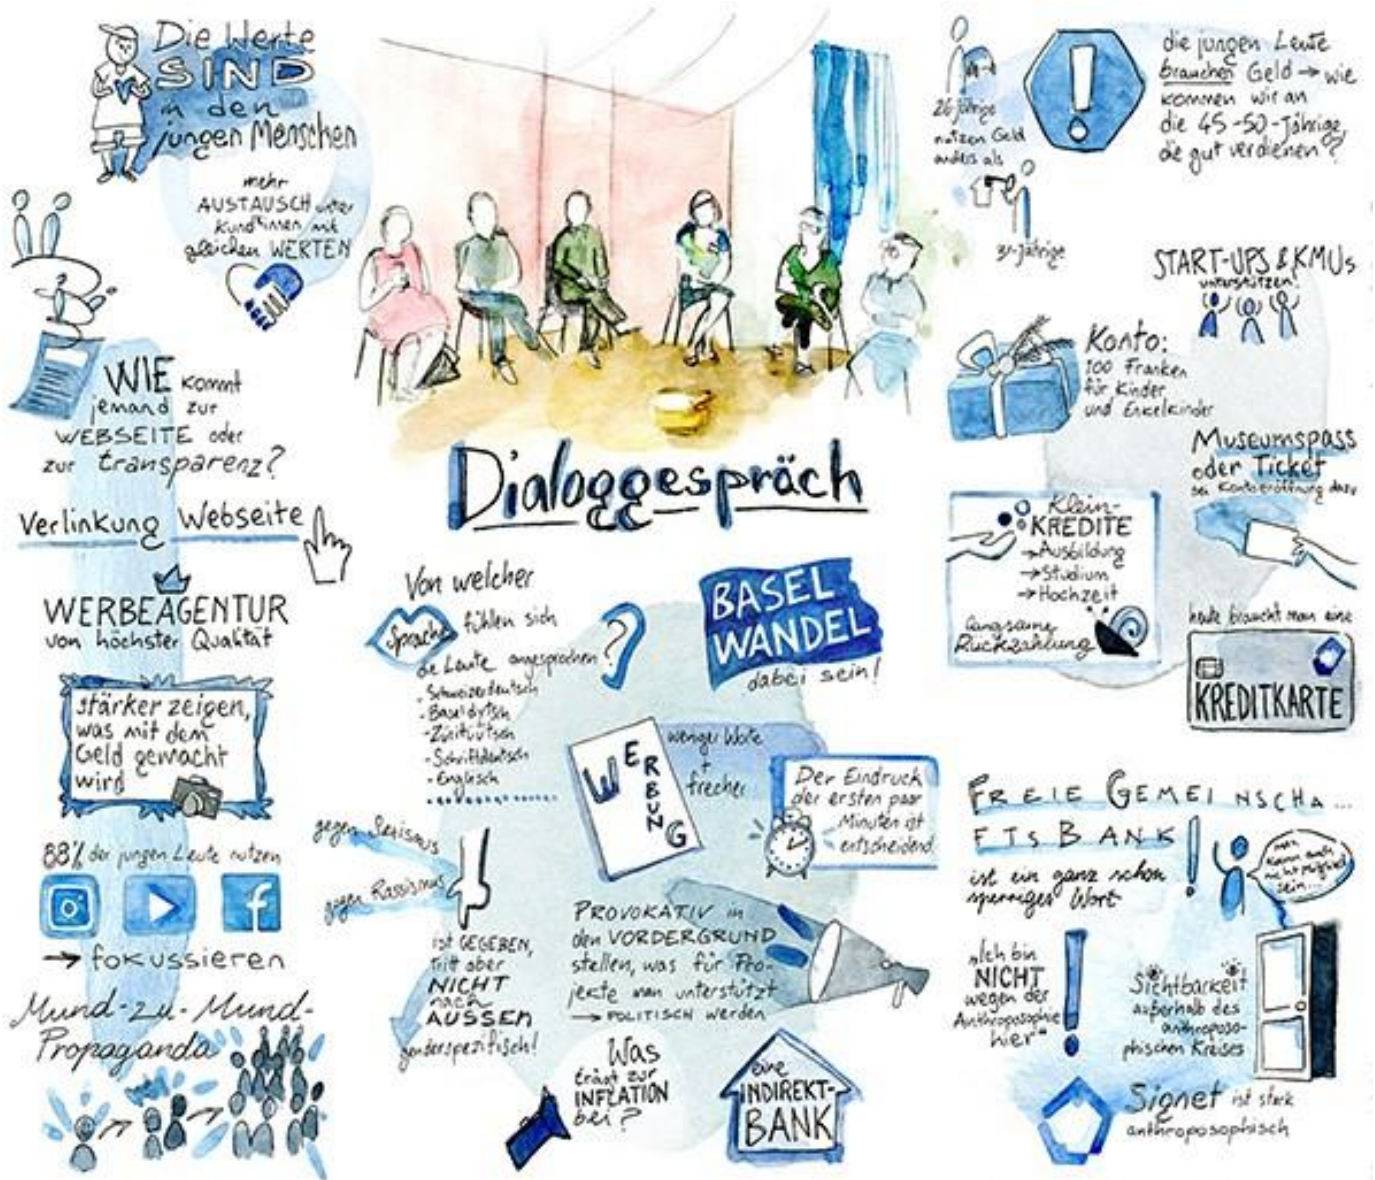 Die Werte
SIND
in den
jungen Menschen
mehr
AUSTAUSCH unter
Kund*innen mit
gleichen WERTEN
WIE kommt
jemand zur
WEBSEITE oder
zur transparenz?
Verlinkung Webseite
WERBEAGENTUR
von höchster Qualität
stärker zeigen,
was mit dem
Geld gemacht
wird
88% der jungen Leute nutzen
→ fokussieren
Mund-zu-Mund-
Propaganda
Dialoggespräch
Von welcher
Sprache fühlen sich
die Leute angesprochen?
- Schweizerdeutsch
- Baseldytsch
- Züritüütsch
- Schriftdeutsch
- Englisch
gegen Sexismus
gegen Rassismus
ist GEGEBEN,
tritt aber
NICHT
nach
AUSSEN
genderspezifisch!
BASEL
WANDEL
dabei sein!
WERBUNG
weniger Worte
+
frecher
Der Eindruck
der ersten paar
Minuten ist
entscheidend
PROVOKATIV in
den VORDERGRUND
stellen, was für Pro-
jekte man unterstützt
→ POLITISCH werden
Was
trägt zur
INFLATION
bei?
eine
INDIREKT-
BANK
26-jährige
nutzen Geld
anders als
31-jährige
die jungen Leute
brauchen Geld → wie
kommen wir an
die 45-50-Jährige,
die gut verdienen?
START-UPS & KMUs
unterstützen!
Konto:
100 Franken
für Kinder
und Enkelkinder
Museumspass
oder Ticket
bei Kontoeröffnung dazu
Klein-
KREDITE
→ Ausbildung
→ Studium
→ Hochzeit
langsame
Rückzahlung
heute braucht man eine
KREDITKARTE
FREIE GEMEINSCHA...
FTSBANK!
ist ein ganz schön
sperriges Wort
man
kann auch
nicht mitglied
sein...
"Ich bin
NICHT
wegen der
Anthroposophie
hier"
Sichtbarkeit
außerhalb des
anthroposo-
phischen Kreises
Signet ist stark
anthroposophisch